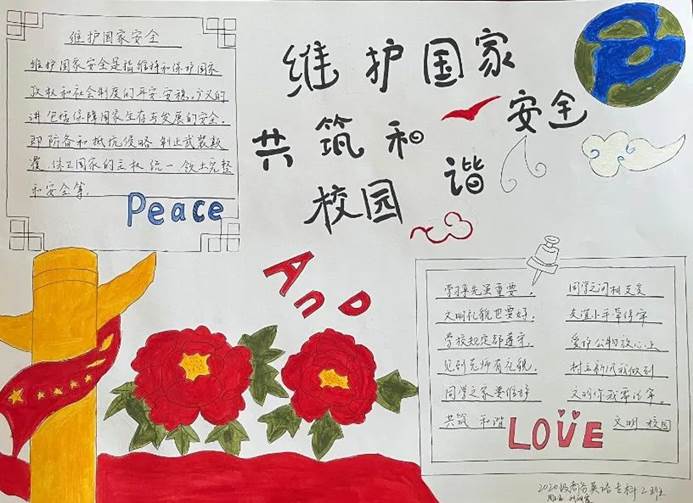 维护国家安全
维护国家安全是指维持和保护国家
政权和社会制度的平安安稳,广义的
讲包括保障国家生存与发展的安全.
即防备和抵抗侵略制止武装颠
覆.保卫国家的主权统一领土完整
和安全等.
Peace
维护国家安全
共筑和谐
校园
AnD
学操先画重要. 同学之间相友爱
文明礼貌也要好, 友谊小手牵得牢
学校规定都遵守, 爱护公物放心上
见到老师有礼貌, 树立新风我做到
同学之家要维护 文明你我
共筑 和谐 文明 校园
LOVE
2020级商务英语专科2班